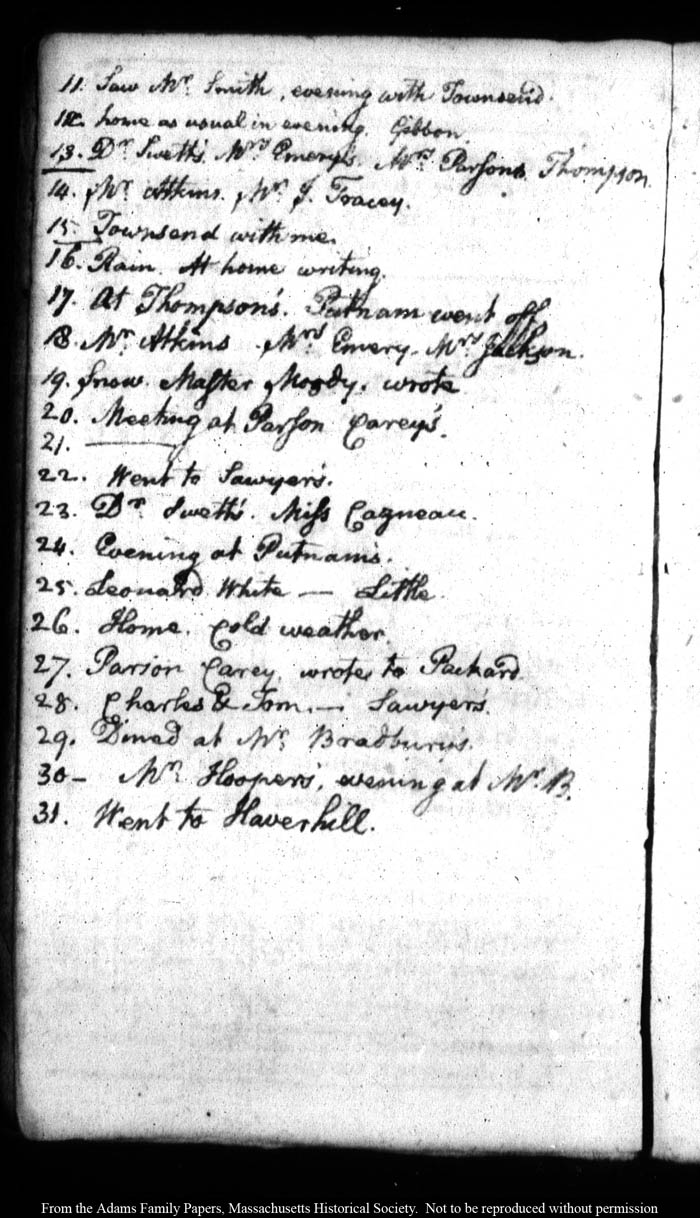 11. Saw Mr. Smith, evening with Townsend.
12. home as usual in evening. Gibbon
13. Dr. Swett's. Mrs. Emery's. Mrs. Parsons. Thompson
14. Mr. Atkins. Mr. J. Tracey.
15. Townsend with me.
16. Rain. At home writing.
17. At Thompson's. Putnam went off
18. Mr. Atkins. Mrs. Emery. Mrs. Jackson.
19. Snow. Master Moody. wrote
20. Meeting at Parson Carey's.
21. ———
22. Went to Sawyer's.
23. Dr. Swett's. Miss Cazneau.
24. Evening at Putnams.
25. Leonard White — Little.
26. Home. Cold weather
27. Parson Carey. wrote to Packard
28. Charles & Tom. — Sawyer's.
29. Dined at Mr. Bradbury's.
30 — Mr. Hooper's, evening at Mr. B.
31. Went to Haverhill.
From the Adams Family Papers, Massachusetts Historical Society. Not to be reproduced without permission